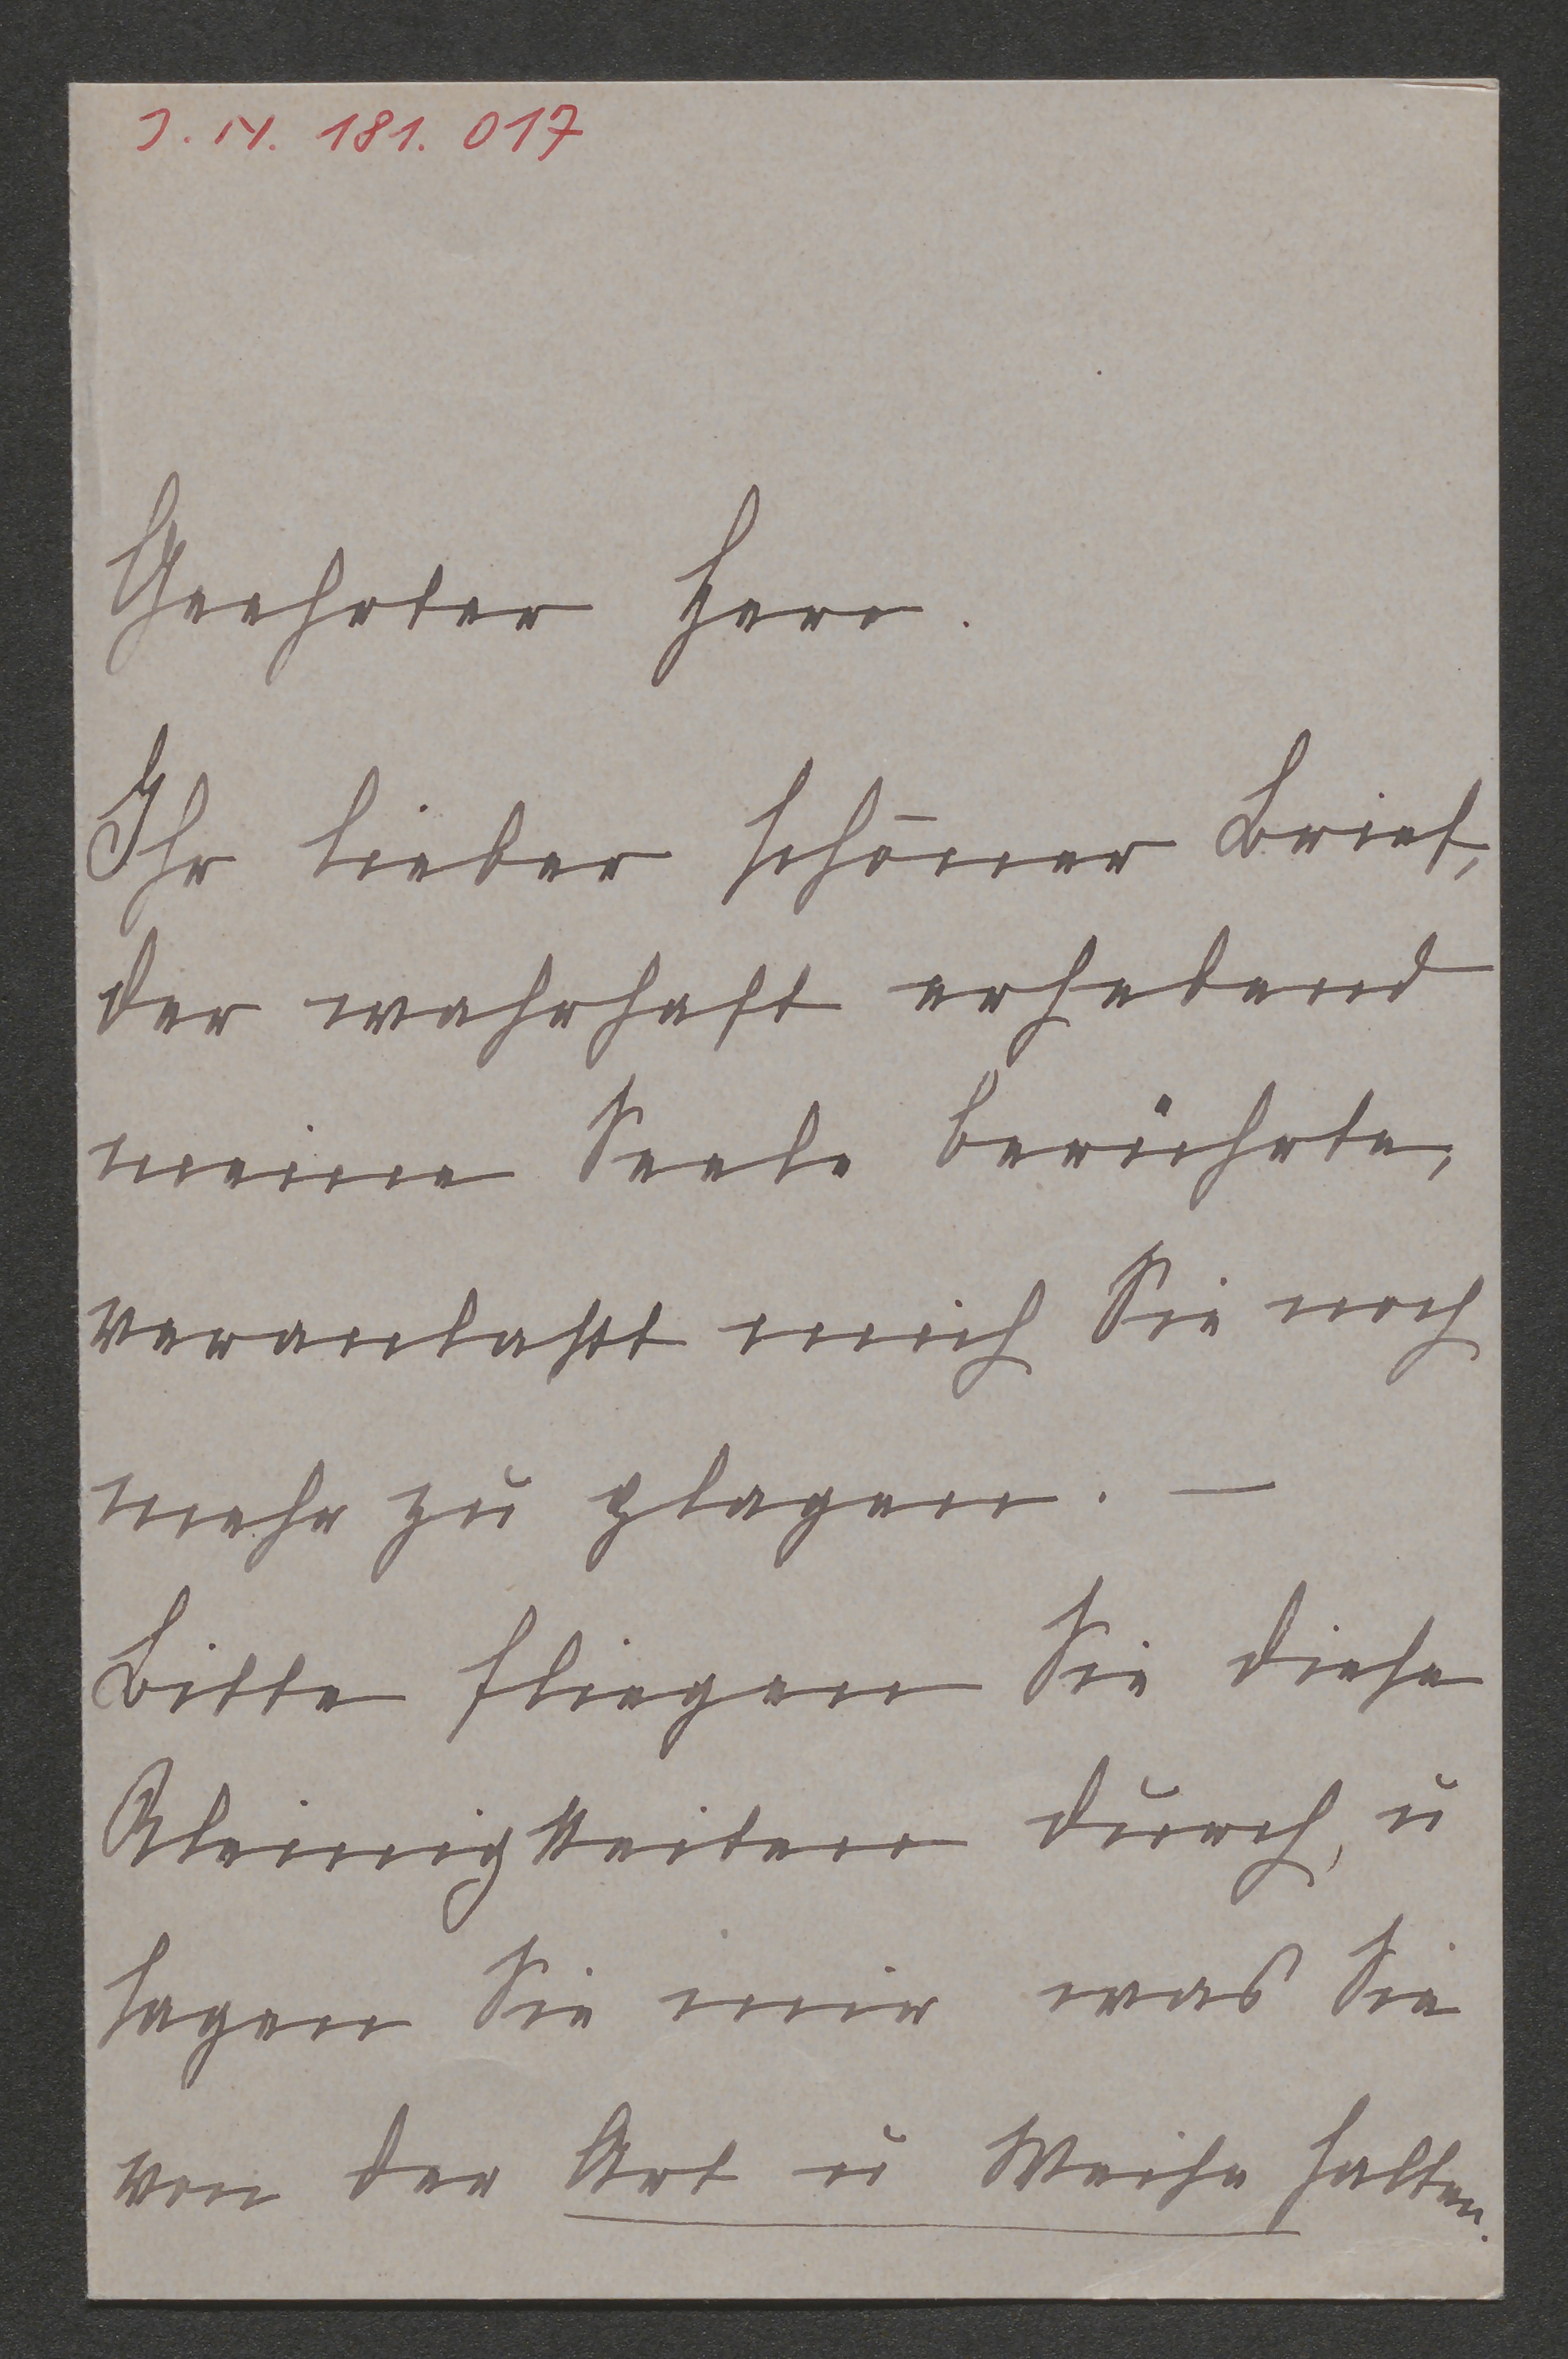 J. N. 181. 017
Geehrter Herr.
Ihr lieber schöner Brief,
der wahrhaft erhebend
meine Seele berührte,
veranlaßt mich Sie noch
mehr zu plagen. —
Bitte fliegen Sie diese
Kleinigkeiten durch, u
sagen Sie mir was Sie
von der Art u Weise halten.